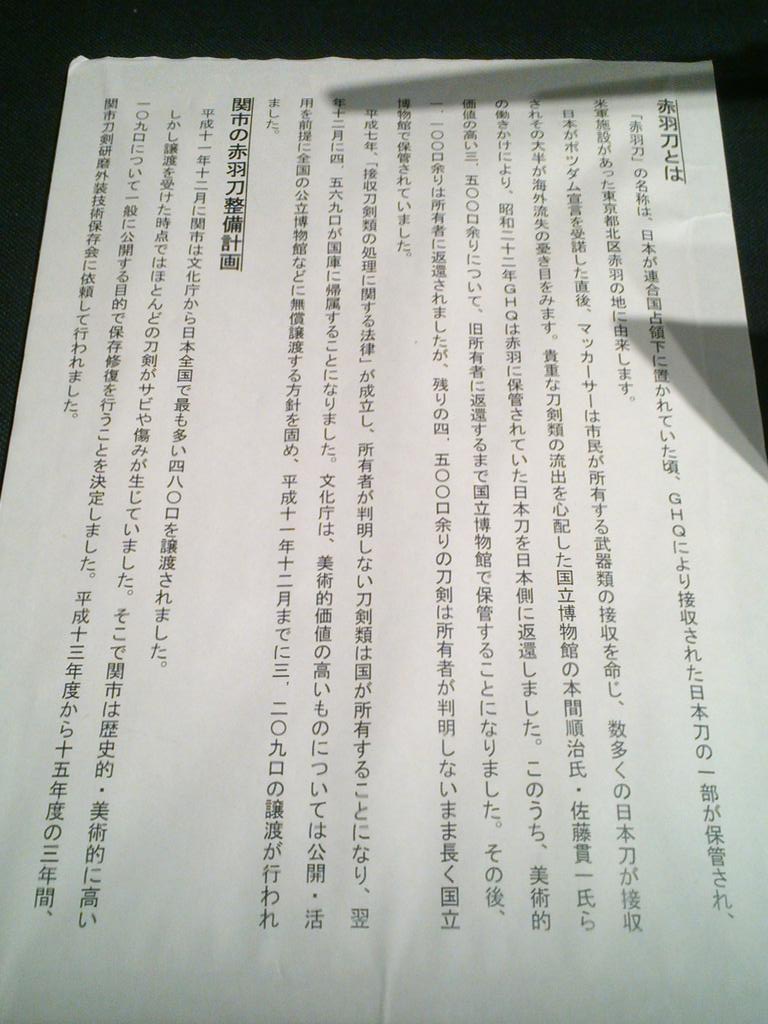 赤羽刀とは
「赤羽刀」の名称は、日本が連合国占領下に置かれていた頃、GHQにより接収された日本刀の一部が保管され、
米軍施設があった東京都北区赤羽の地に由来します。
日本がポツダム宣言を受諾した直後、マッカーサーは市民が所有する武器類の接収を命じ、数多くの日本刀が接収
されその大半が海外流失の憂き目をみます。貴重な刀剣類の流出を心配した国立博物館の本間順治氏・佐藤貫一氏ら
の働きかけにより、昭和二十二年GHQは赤羽に保管されていた日本刀を日本側に返還しました。このうち、美術的
価値の高い三，五〇〇口余りについて、旧所有者に返還するまで国立博物館で保管することになりました。その後、
一，一〇〇口余りは所有者に返還されましたが、残りの四，五〇〇口余りの刀剣は所有者が判明しないまま長く国立
博物館で保管されていました。
平成七年、「接収刀剣類の処理に関する法律」が成立し、所有者が判明しない刀剣類は国が所有することになり、翌
年十二月に四，五六九口が国庫に帰属することになりました。文化庁は、美術的価値の高いものについては公開・活
用を前提に全国の公立博物館などに無償譲渡する方針を固め、平成十一年十二月までに三，二〇九口の譲渡が行われ
ました。
関市の赤羽刀整備計画
平成十一年十二月に関市は文化庁から日本全国で最も多い四八〇口を譲渡されました。
しかし譲渡を受けた時点ではほとんどの刀剣がサビや傷みが生じていました。そこで関市は歴史的・美術的に高い
一〇九口について一般に公開する目的で保存修復を行うことを決定しました。平成十三年度から十五年度の三年間、
関市刀剣研磨外装技術保存会に依頼して行われました。